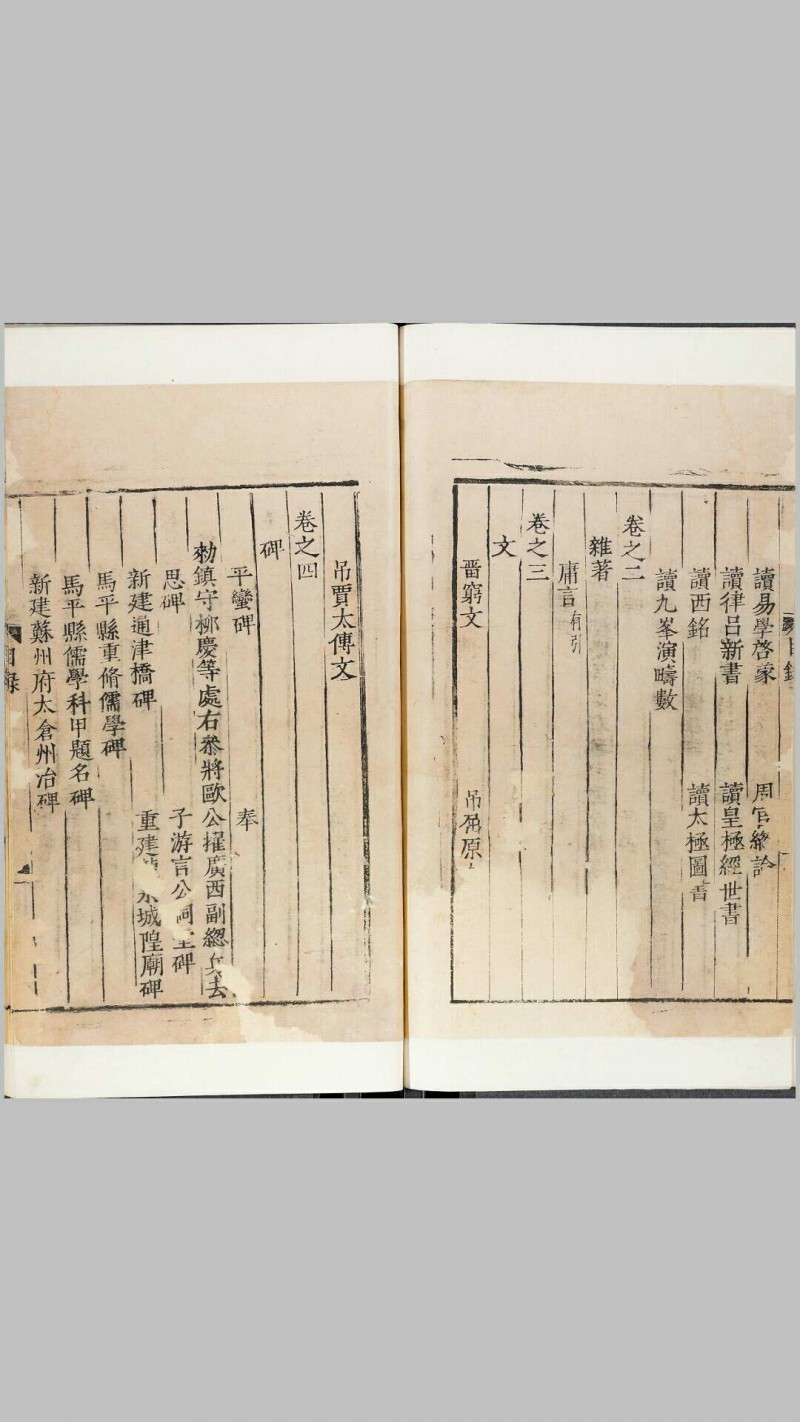 讀易學啓蒙　周官總論
讀律呂新書　讀皇極經世書
讀西銘　讀太極圖書
讀九峯演疇數
卷之二
雜著
庸言有引
卷之三
文
詈窮文　吊屈原
吊賈太傅文
卷之四
碑
平蠻碑　奉
勑鎮守柳慶等處右叅將歐公擢廣西副總兵去
思碑　子游言公祠堂碑
新建通津橋碑　重建 城隍廟碑
馬平縣重脩儒學碑
馬平縣儒學科甲題名碑
新建蘇州府太倉州治碑
目錄